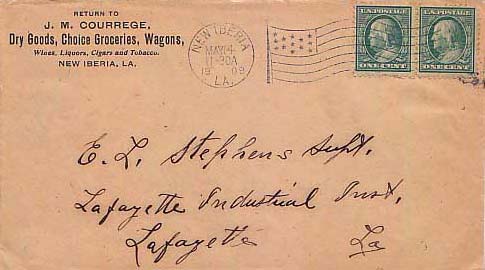 RETURN TO
J. M. COURREGE,
Dry Goods, Choice Groceries, Wagons,
Wines, Liquors, Cigars and Tobacco.
NEW IBERIA, LA.
NEW IBERIA
MAY 4
11-30A
1909
LA.
U.S. POSTAGE
ONE CENT
U.S. POSTAGE
ONE CENT
E. L. Stephens Supt.
Lafayette Industrial Inst.
Lafayette La